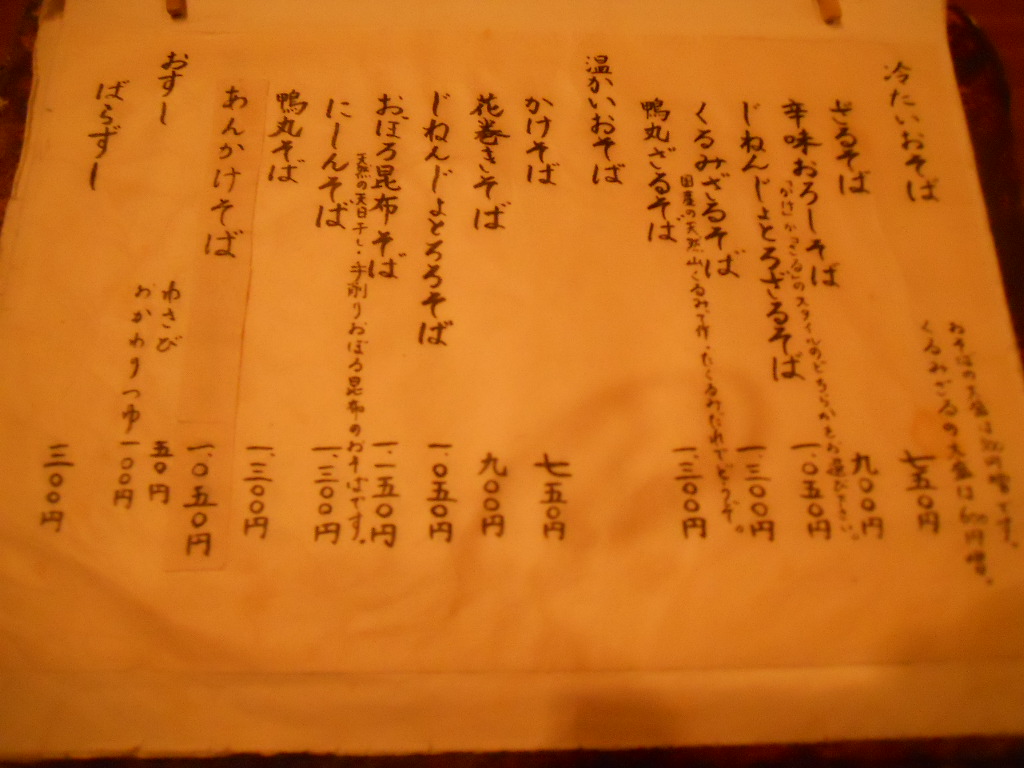 冷たいおそば
おそばの大盛は300円増です。
くるみざるの大盛は 円増。
ざるそば 七五〇円
辛味おろしそば 九〇〇円
「かけ」か「ざる」のスタイルのどちらかをお選び下さい。
じねんじょとろざるそば 一、〇五〇円
くるみざるそば 一、三〇〇円
国産の天然山くるみで作ったくるみだれでどうぞ。
鴨丸ざるそば 一、三〇〇円
温かいおそば
かけそば 七五〇円
花巻きそば 九〇〇円
じねんじょとろろそば 一、〇五〇円
おぼろ昆布そば 一、一五〇円
天然の天日干し・手削りおぼろ昆布のおそばです。
にしんそば 一、三〇〇円
鴨丸そば 一、三〇〇円
あんかけそば 一、〇五〇円
わさび 五〇円
おかわりつゆ 一〇〇円
おすし
ばらずし 三〇〇円